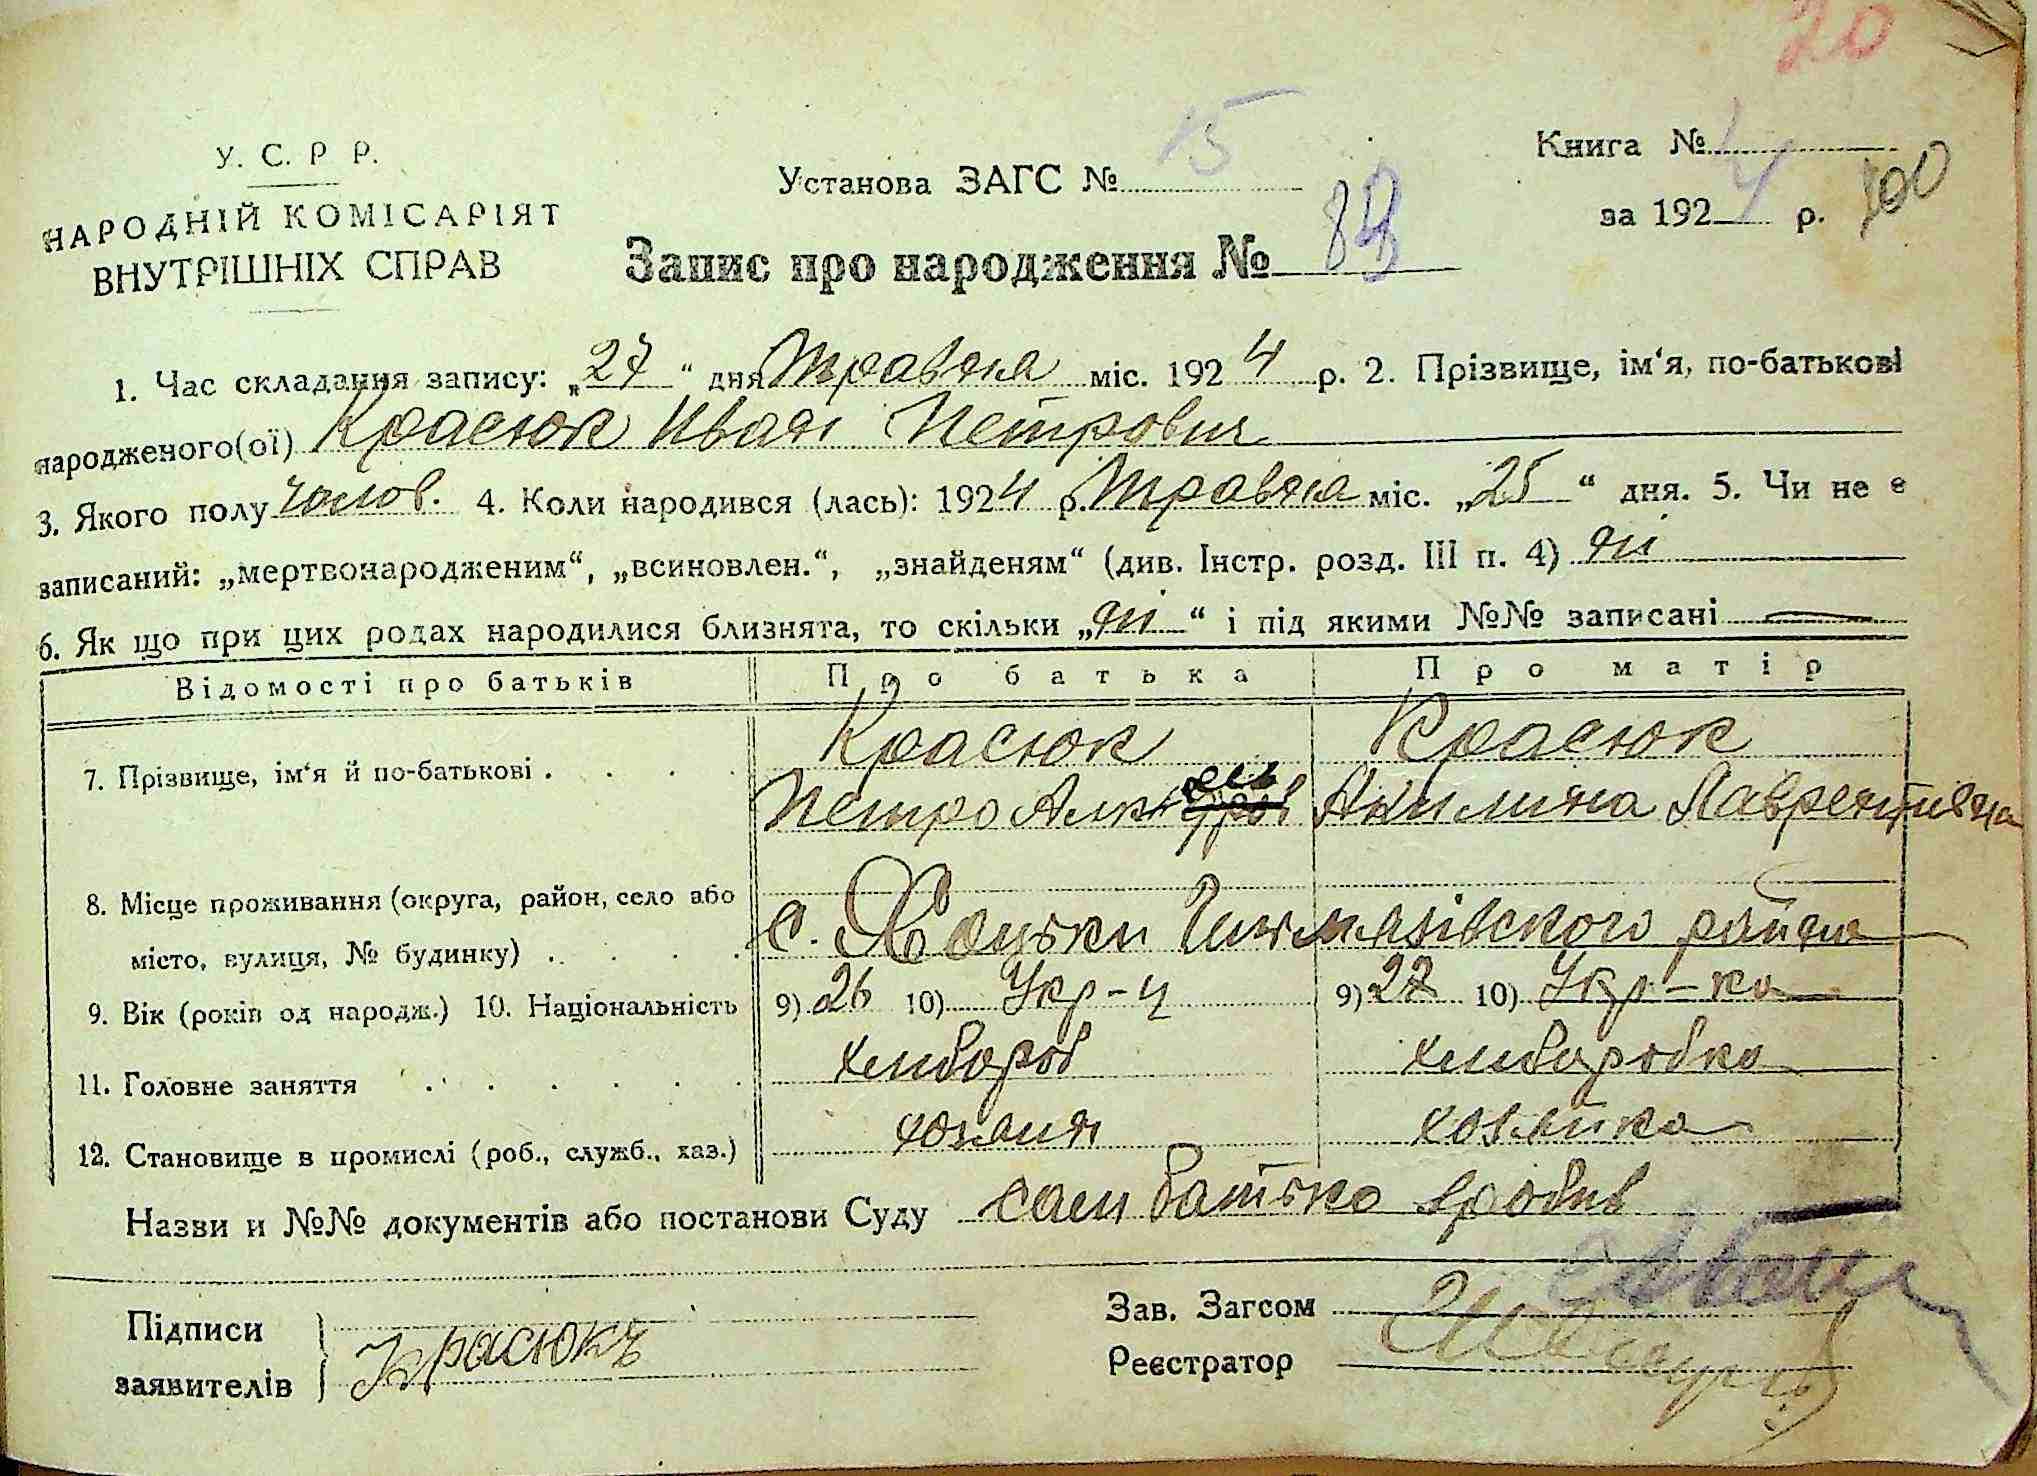 20
У. С. Р Р.
НАРОДНІЙ КОМІСАРІЯТ
ВНУТРІШНІХ СПРАВ
Установа ЗАГС № 15
Книга № 4
за 1924 р. 100
Запис про народження № 88
1. Час складання запису: „27“ дня Травня міс. 1924 р. 2. Прізвище, ім‘я, по-батькові
народженого(ої) Красюк Иван Петрович
3. Якого полу чолов. 4. Коли народився (лась): 1924 р. Травня міс. „25“ дня. 5. Чи не є
записаний: „мертвонародженим“, „всиновлен.“, „знайденям“ (див. Інстр. розд. III п. 4) ні
6. Як що при цих родах народилися близнята, то скільки „ні“ і під якими №№ записані —
Відомості про батьків Про батька Про матір
7. Прізвище, ім‘я й по-батькові . . . . Красюк Красюк
Петро Акилина Лаврентивна
8. Місце проживання (округа, район, село або
місто, вулиця, № будинку) . . . . с. Хоцьки Гельмязівского район
9. Вік (років од народж.) 10. Національність 9) 26 10) Укр-ц 9) 27 10) Укр-ка
11. Головне заняття . . . . . . хлибороб хлиборобка
12. Становище в промислі (роб., служб., хаз.) хозяин хозяйка
Назви и №№ документів або постанови Суду сам батько зробив
Підписи
заявителів Красюкъ
Зав. Загсом
Реєстратор